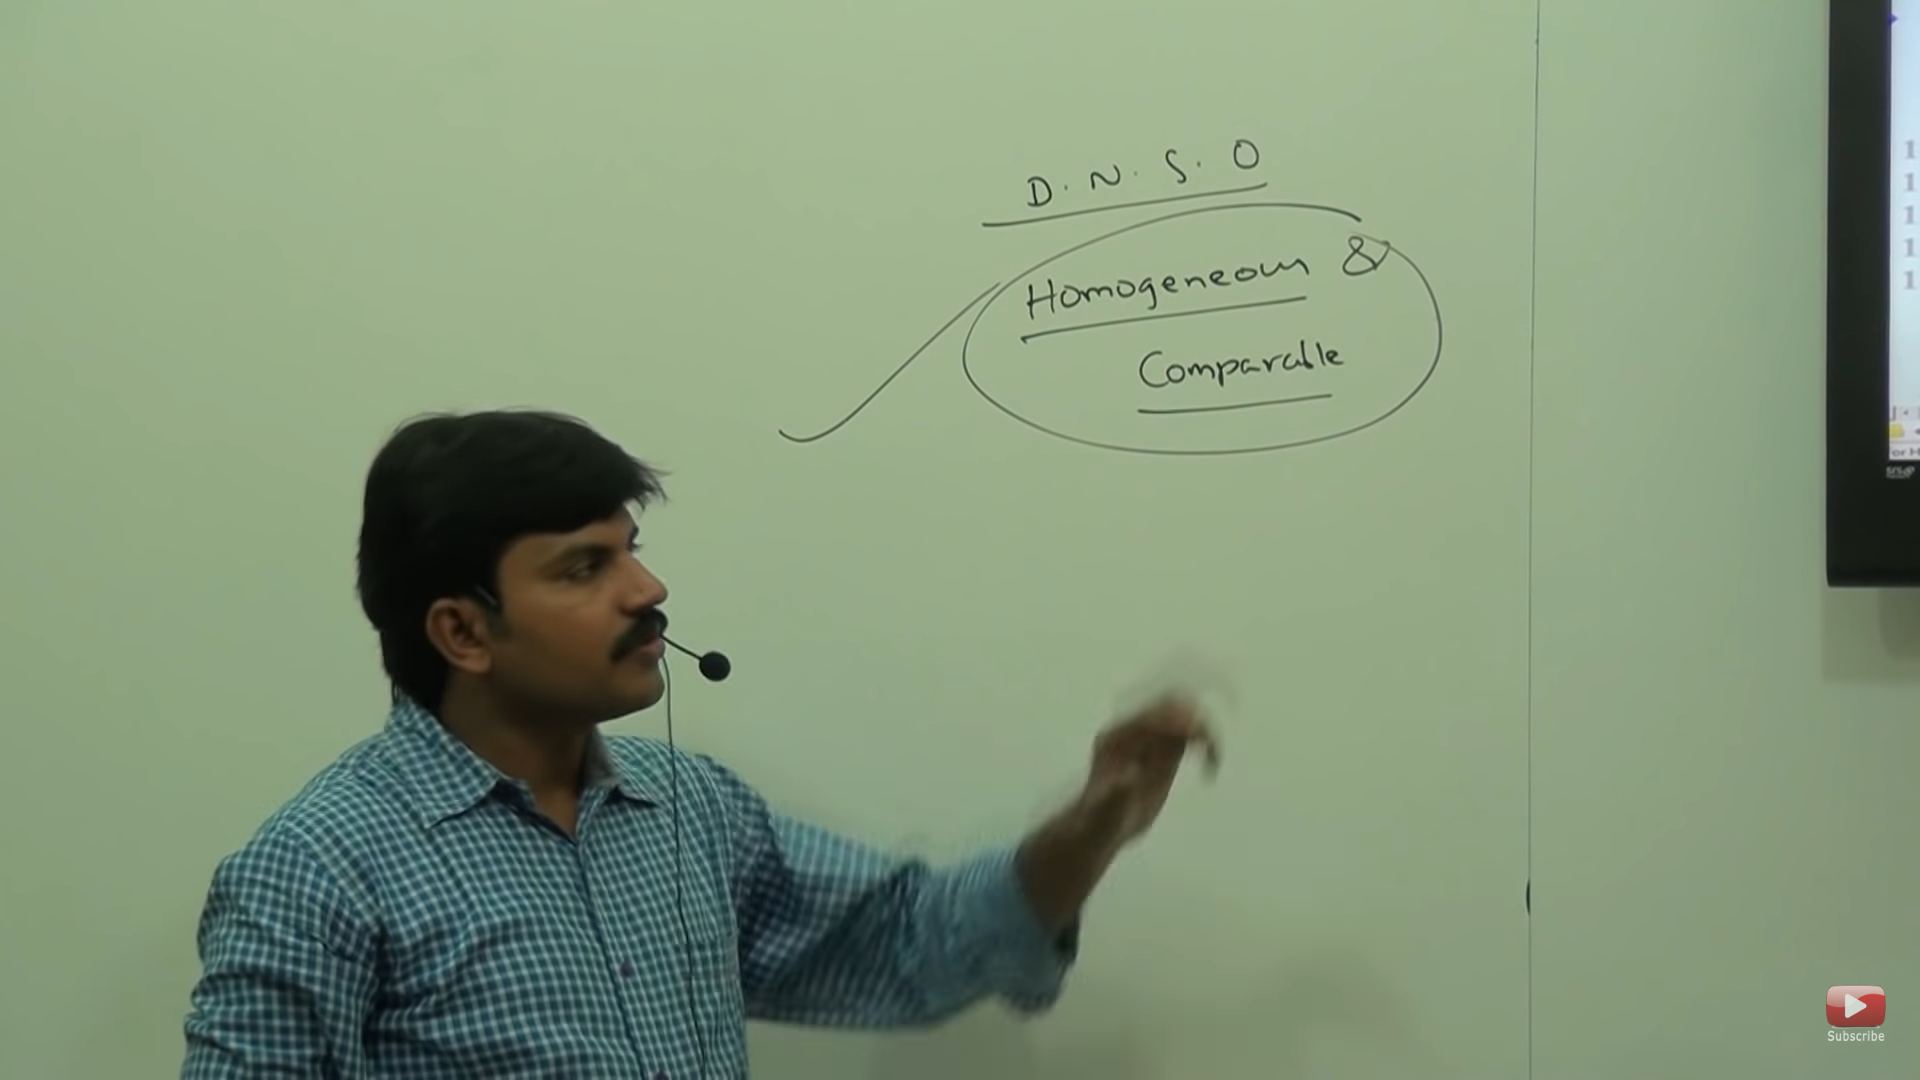 D. N. S. O
Homogeneous &
Comparable
1
1
1
1
1
or H
Subscribe